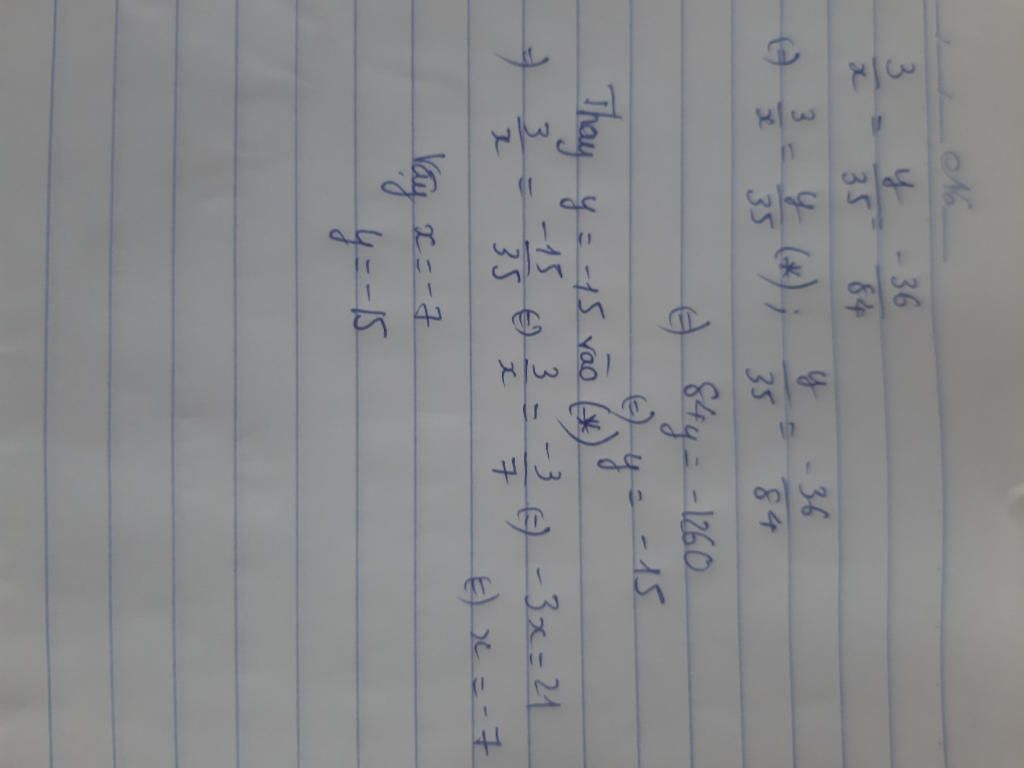 No
3/x = y/35 = -36/84
(=) 3/x = y/35 (*) ; y/35 = -36/84
(=) 84y = -1260
(=) y = -15
Thay y = -15 vào (*)
=) 3/x = -15/35 (=) 3/x = -3/7 (=) -3x = 21
(=) x = -7
Vậy x = -7
y = -15